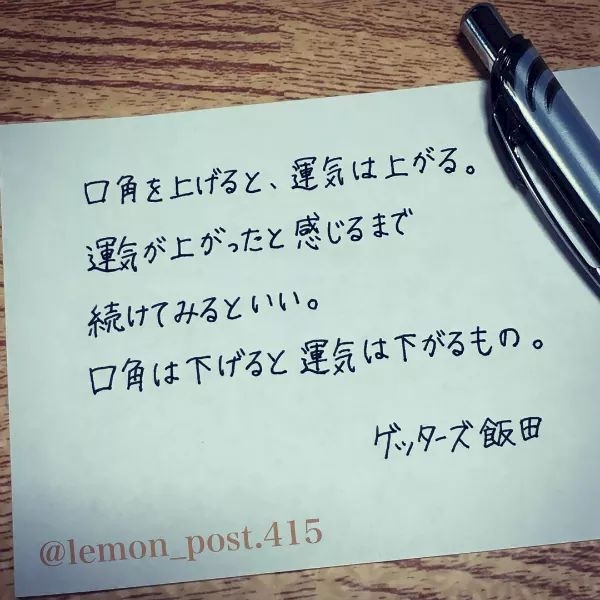 口角を上げると、運気は上がる。
運気が上がったと感じるまで
続けてみるといい。
口角は下げると運気は下がるもの。
ゲッターズ飯田
@lemon_post.415